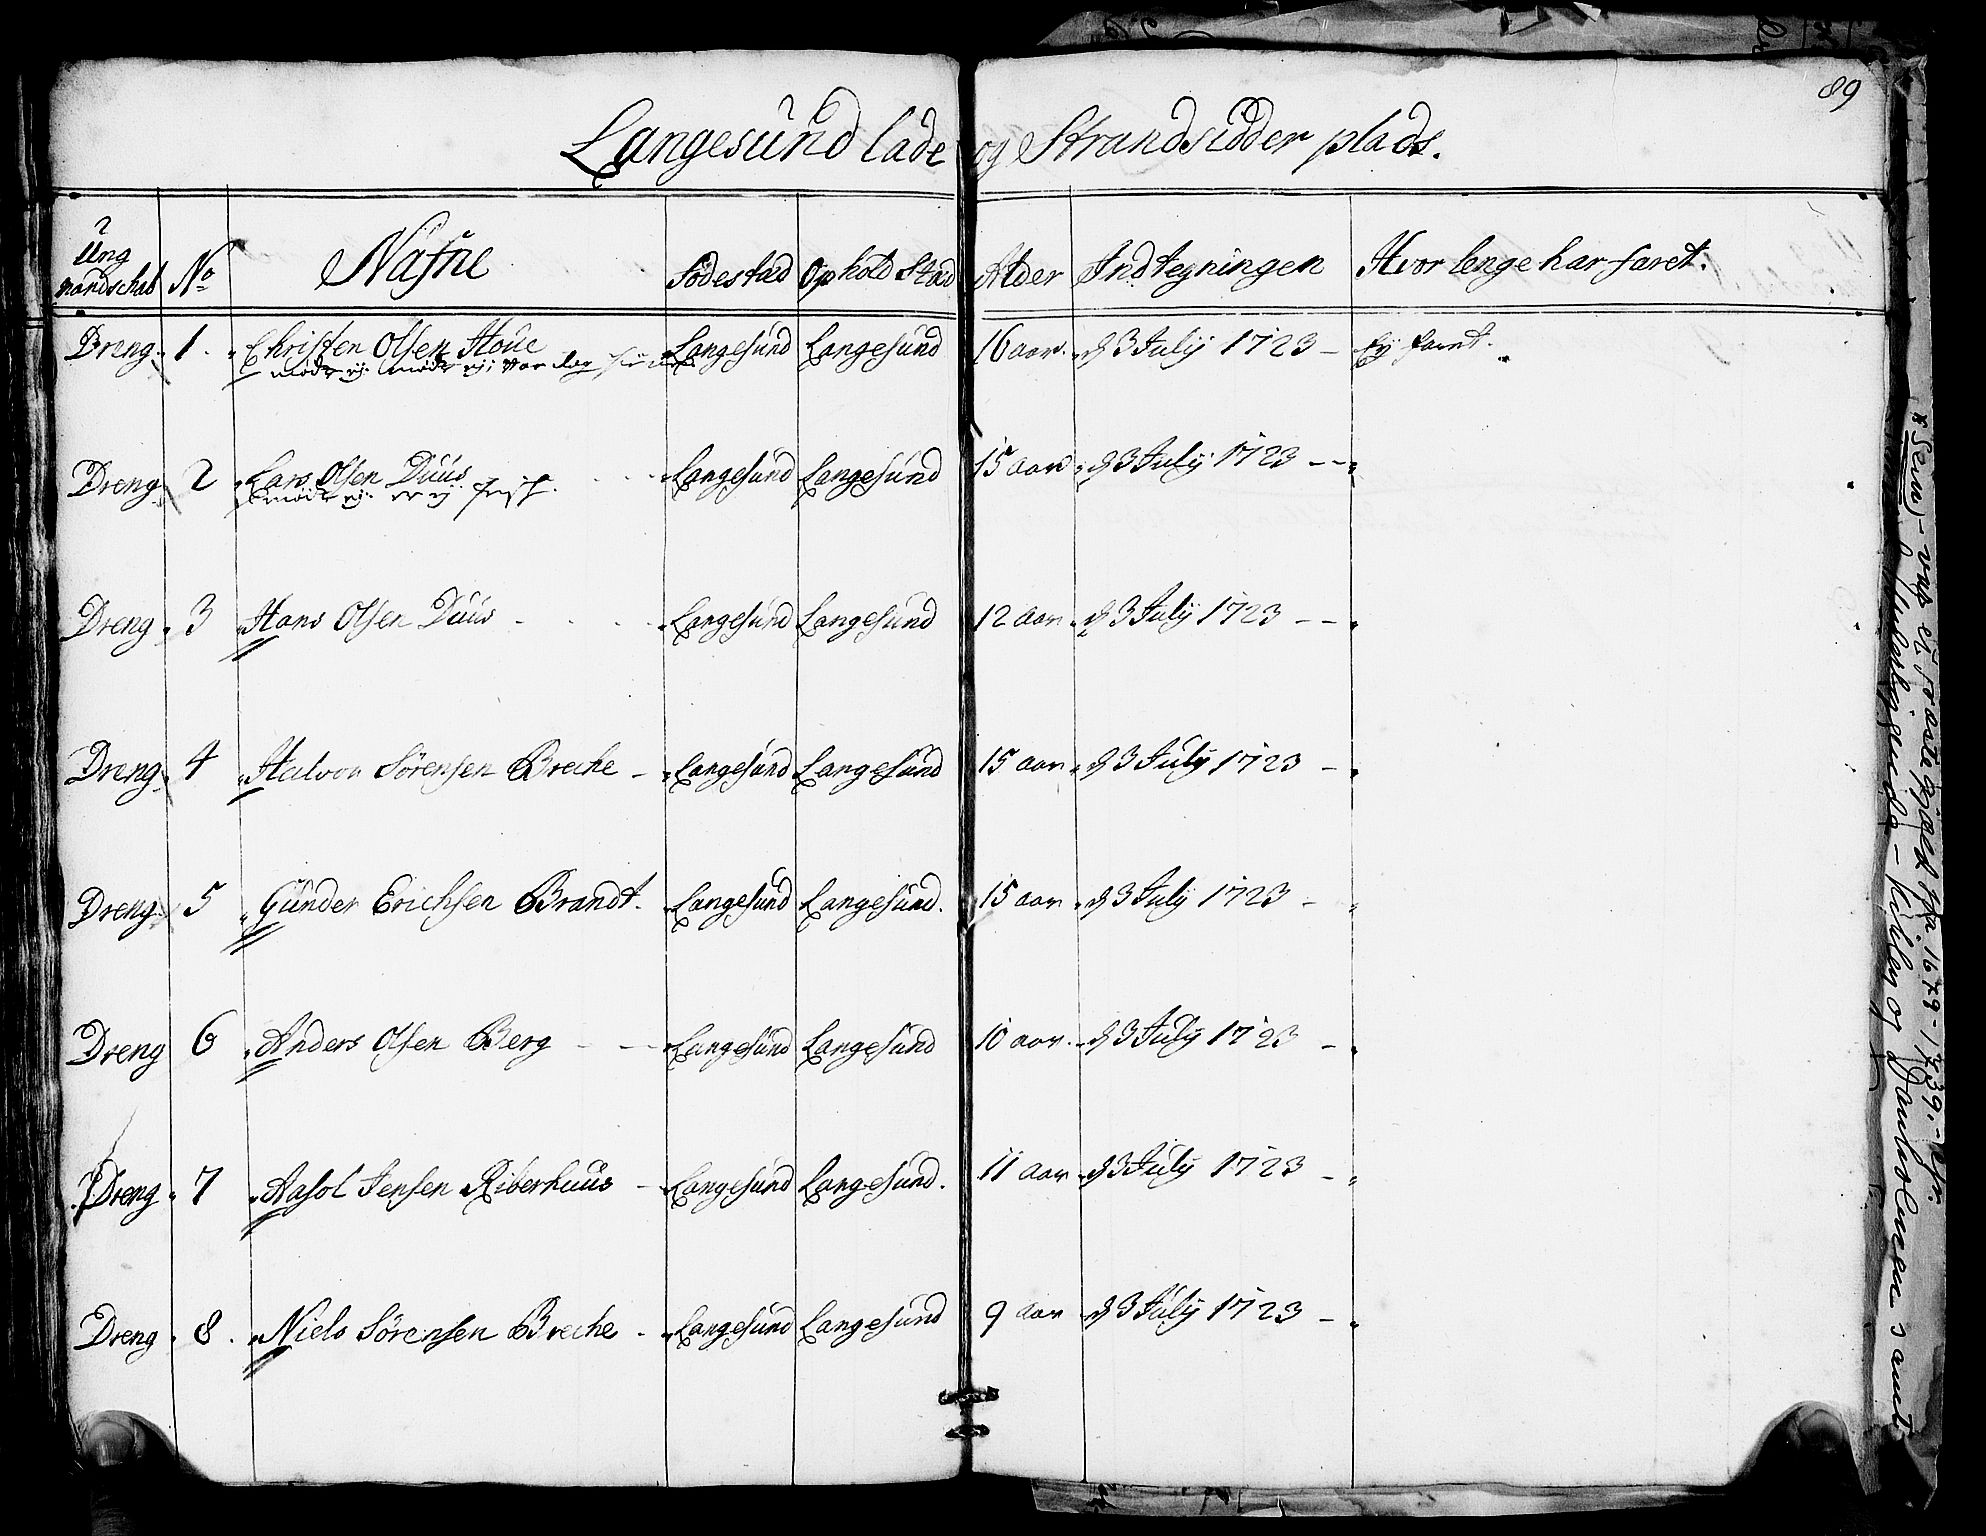 89
Langesund lade og Strandsidder plads.
Ung mandschab No Nafne Födestæd Ophold Stæd Alder Indtegningen Hvor lenge har faret.
Dreng 1. Christen Olsen Houe Langesund Langesund 16 aar. d 3 July 1723 – Ey faret.
mødt ej. mødt ej.
Dreng 2 Lars Olsen Duus Langesund Langesund 15 aar d 3 July 1723 – –
mødt ej. er ej frisk.
Dreng 3 Hans Olsen Duus Langesund Langesund 12 aar. d 3 July 1723 – –
Dreng 4 Halvor Sörensen Breche – Langesund Langesund 15 aar d 3 July 1723 –
Dreng 5 Gunder Erichsen Brandt. Langesund Langesund. 15 aar d 3 July 1723 –
Dreng 6 Anders Olsen Berg – – Langesund Langesund 10 aar. d 3 July 1723 –
Dreng 7 Aasol Jensen Riberhuus – Langesund Langesund. 11 aar d 3 July 1723 –
Dreng 8. Niels Sörensen Breche – Langesund Langesund 9 aar d 3 July 1723 –